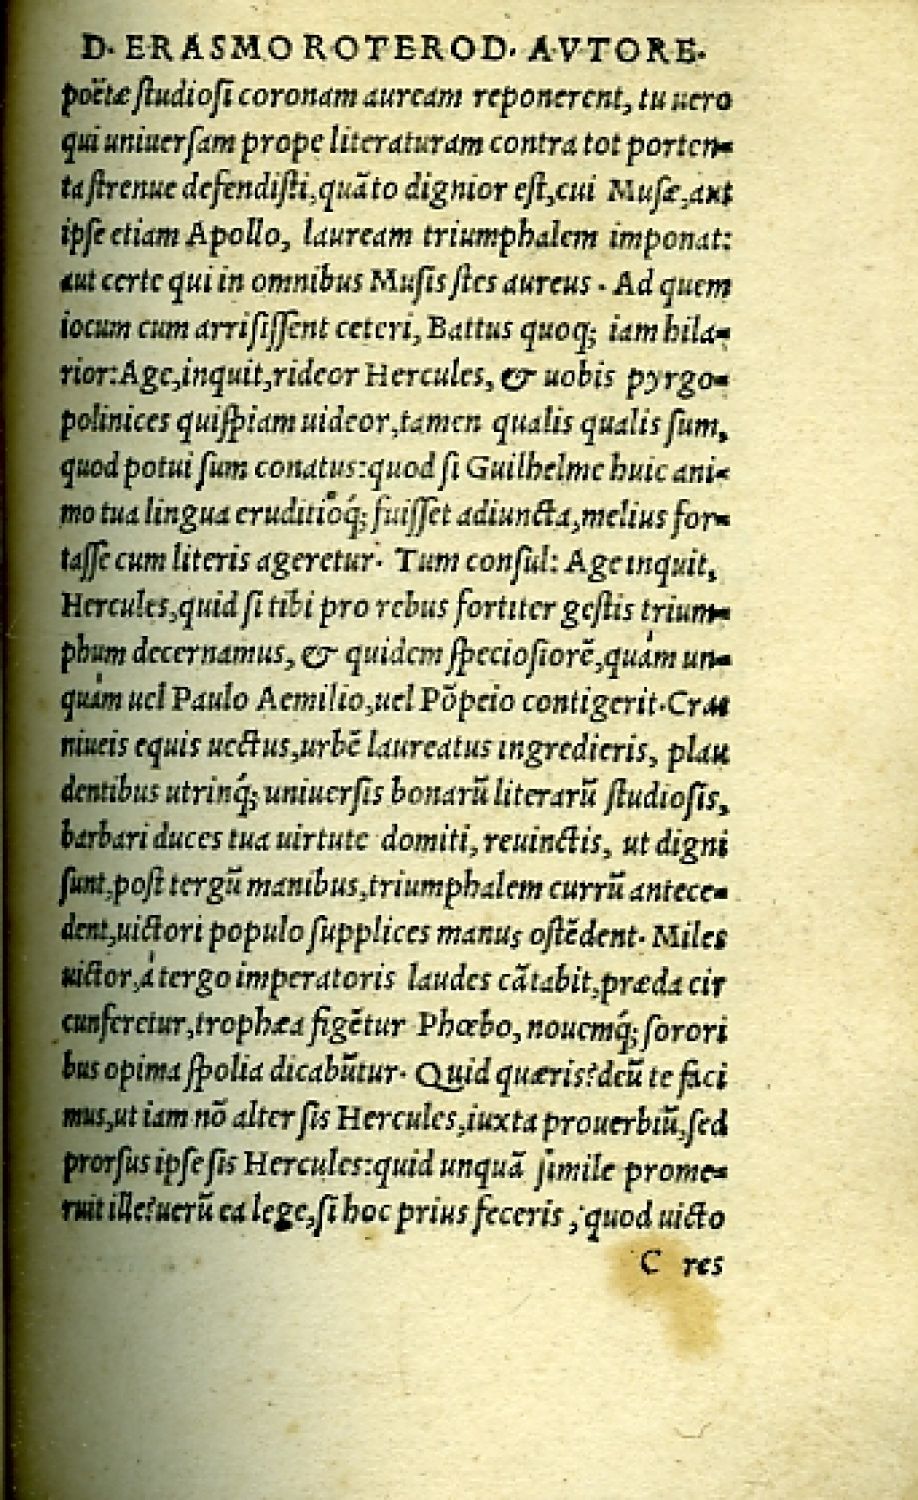 D. ERASMO ROTEROD. AVTORE.
poëtæ ſtudioſi coronam auream reponerent, tu uero
qui uniuerſam prope literaturam contra tot porten-
ta ſtrenue defendiſti,quãto dignior eſt,cui Muſæ,aut
ipſe etiam Apollo, lauream triumphalem imponat:
aut certe qui in omnibus Muſis ſtes aureus. Ad quem
iocum cum arriſiſſent ceteri, Battus quoq; iam hila-
rior:Age,inquit,rideor Hercules, & uobis pyrgo-
polinices quiſpiam uideor,tamen qualis qualis ſum,
quod potui ſum conatus:quod ſi Guilhelme huic ani-
mo tua lingua eruditióq́; fuiſſet adiuncta,melius for-
taſſe cum literis ageretur. Tum conſul: Age inquit,
Hercules,quid ſi tibi pro rebus fortiter geſtis trium-
phum decernamus, & quidem ſpecioſiorẽ,quàm un-
quàm uel Paulo Aemilio,uel Põpeio contigerit.Cras
niueis equis uectus,urbẽ laureatus ingredieris, plau
dentibus utrinq́; uniuerſis bonarũ literarũ ſtudioſis,
barbari duces tua uirtute domiti, reuinctis, ut digni
ſunt,poſt tergũ manibus,triumphalem currũ antece-
dent,uictori populo ſupplices manus oſtẽdent. Miles
uictor,à tergo imperatoris laudes cãtabit,præda cir
cunferetur,trophæa figẽtur Phœbo, nouemq́; ſorori
bus opima ſpolia dicabũtur. Quid quæris?deũ te faci
mus,ut iam nõ alter ſis Hercules,iuxta prouerbiũ,ſed
prorſus ipſe ſis Hercules:quid unquã ſimile prome-
ruit ille?uerũ ea lege,ſi hoc prius feceris, quod uicto
C res